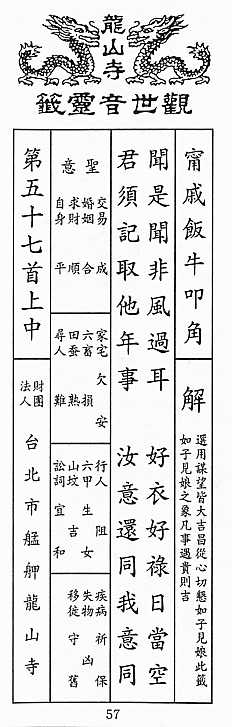 龍山寺
觀世音靈籤
甯戚飯牛叩角
解
選用謀望皆大吉昌從心切懇如子見娘此籤
如子見娘之象凡事遇貴則吉
聞是聞非風過耳 好衣好祿日當空
君須記取他年事 汝意還同我意同
聖意
交易 成
婚姻 合
求財 順
自身 平
家宅 欠安
六畜 損
田蚕 熟
尋人 難
行人 阻
六甲 生女
山坟 吉
訟詞 宜和
疾病 祈保
失物 凶
移徙 守舊
第五十七首上中
財團
法人
台北市艋舺龍山寺
57